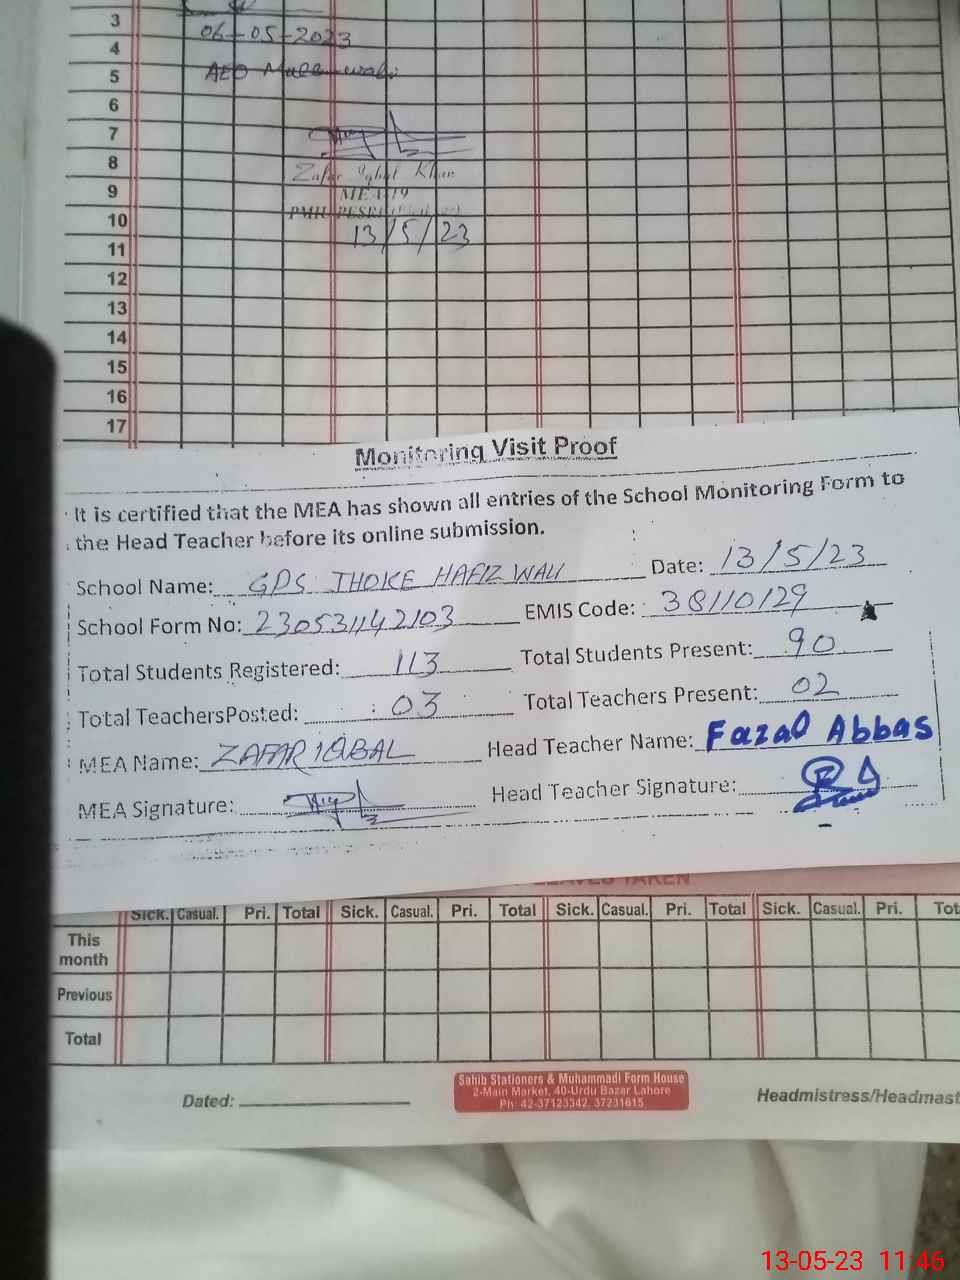 3
06-05-2023
4
5
AEO
6
7
8
Zafar Iqbal Khan
9
MEA-19
10
13/5/23
11
12
13
14
15
16
17
Monitoring Visit Proof
It is certified that the MEA has shown all entries of the School Monitoring Form to
the Head Teacher before its online submission.
School Name: GPS THOKE HAFIZ WALI Date: 13/5/23
School Form No: 230531142103 EMIS Code: 38110129
Total Students Registered: 113 Total Students Present: 90
Total TeachersPosted: 03 Total Teachers Present: 02
MEA Name: ZAFAR IQBAL Head Teacher Name: Fazal Abbas
MEA Signature: Head Teacher Signature:
LEAVES TAKEN
Sick. Casual. Pri. Total Sick. Casual. Pri. Total Sick. Casual. Pri. Total Sick. Casual. Pri. Tot
This
month
Previous
Total
Dated:
Sahib Stationers & Muhammadi Form House
2-Main Market, 40-Urdu Bazar Lahore
Ph: 42-37123342, 37231615
Headmistress/Headmast
13-05-23 11:46